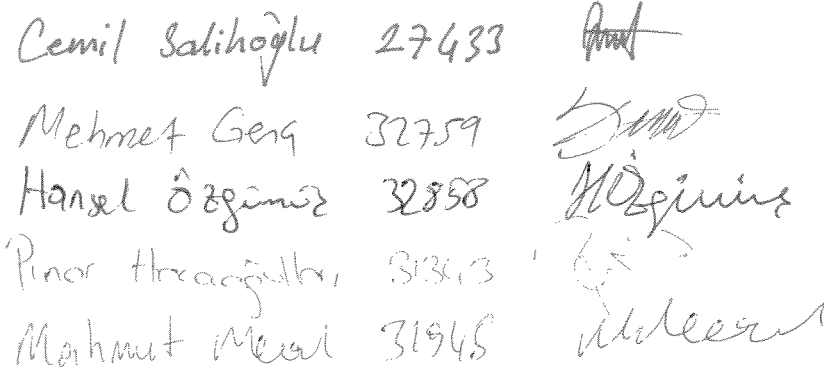 Cemil Salihoğlu 27433
Mehmet Genç 32759
Hansel Özgümüş 32858 HÖzgümüş
Pınar
Mahmut Meral 31945